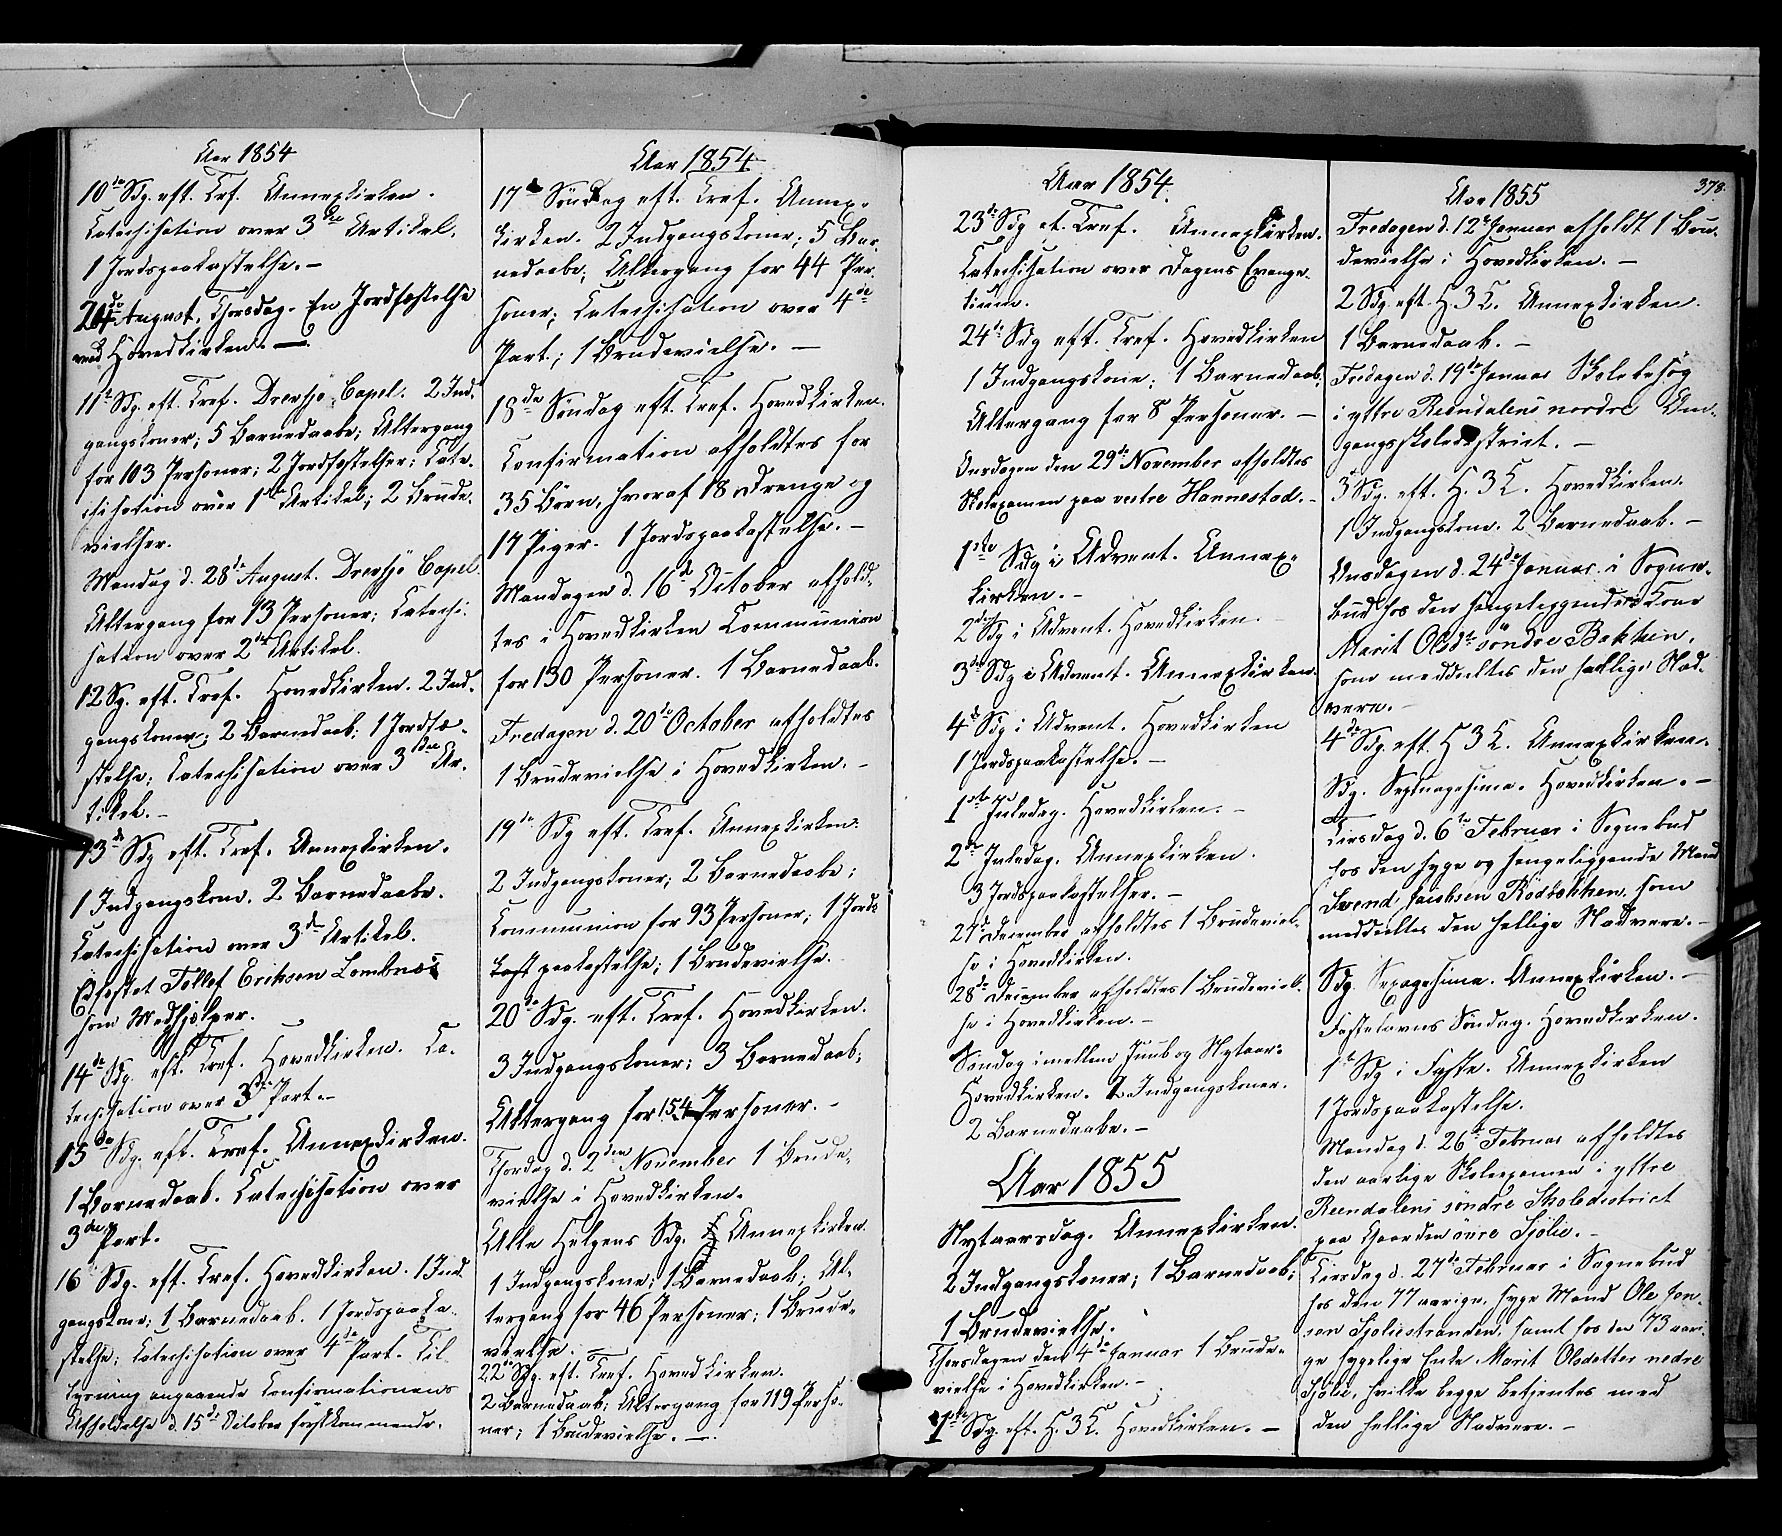 Aar 1854
10de Sdg. eft. Tref. Annexkirken.
Catechisation over 3die Artikel.
1 Jordspaakastelse. –
24de August, Thorsdag. En Jordfæstelse
ved Hovedkirken. –
11te Sdg. eft. Tref. Drevsjø Capel. 2 Ind-
gangskoner; 5 Barnedaabe; Altergang
for 103 Personer; 2 Jordfæstelser; Cate-
chisation over 1ste Artikel; 2 Brude-
vielser.
Mandag d. 28de August. Drevsjø Capel.
Altergang for 13 Personer; Catechi-
sation over 2den Artikel.
12 Sg. eft. Tref. Hovedkirken. 2 Ind-
gangskoner; 2 Barnedaab; 1 Jordfæ-
stelse; Catechisation over 3die Ar-
tikel. –
13de Sdg eft. Tref. Annexkirken.
1 Indgangskone. 2 Barnedaabe.
Catechisation over 3die Artikel.
Edfæstet Tollef Eriksen Lombnæs
som Medhjelper.
14de Sdg. eft. Tref. Hovedkirken. Ca-
techisation over 3die Part. –
15de Sdg. eft. Tref. Annexkirken.
1 Barnedaab. Catechisation over
3die Part.
16 Sdg. eft. Tref. Hovedkirken. 1 Ind-
gangskone; 1 Barnedaab. 1 Jordspaaka-
stelse; Catechisation over 4de Part. Til-
lysning angaaende Confirmationens
Afholdelse d. 15de October førstkommende.
Aar 1854
17de Søndag eft. Tref. Annex-
kirken. 2 Indgangskoner; 5 Bar-
nedaabe; Altergang for 44 Per-
soner; Catechisation over 4de
Part.; 1 Brudevielse. –
18de Søndag eft. Tref. Hovedkirken.
Confirmation afholdtes for
35 Børn, hvoraf 18 Drenge og
17 Piger. 1 Jordspaakastelse. –
Mandagen d. 16de October afhold-
tes i Hovedkirken Communion
for 130 Personer. 1 Barnedaab.
Fredagen d. 20de October afholdtes
1 Brudevielse i Hovedkirken. –
19de Sdg eft. Tref. Annexkirken.
2 Indgangskoner; 2 Barnedaabe;
Communion for 93 Personer; 1 Jords
paakastelse; 1 Brudevielse.
20de Sdg. eft. Tref. Hovedkirken.
3 Indgangskoner; 3 Barnedaab;
Altergang for 154 Personer. –
Thorsdag d. 2den November 1 Brude-
vielse i Hovedkirken.
Alle Helgens Sdg. Annexkirken.
1 Indgangskone; 1 Barnedaab; Al-
tergang for 46 Personer; 1 Brude-
vielse.
22de Sdg. eft. Tref. Hovedkirken.
2 Barnedaab; Altergang for 119 Perso-
ner; 1 Brudevielse. –
Aar 1854.
23de Sdg et. Tref. Annexkirken.
Catechisation over Dagens Evange-
lium.
24de Sdg eft. Tref. Hovedkirken
1 Indgangskone; 1 Barnedaab;
Altergang for 8 Personer. –
Onsdagen den 29de November afholdtes
Skolexamen paa vestre Hannestad. –
1ste Sdg i Advent. Annex-
kirken. –
2den Sdg i Advent. Hovedkirken.
3die Sdg i Advent. Annexkirken.
4de Sdg i Advent. Hovedkirken
1 Jordspaakastelse. –
1ste Juledag. Hovedkirken. –
2den Juledag. Annexkirken.
3 Jordspaakastelser. –
27de December afholdtes 1 Brudeviel-
se i Hovedkirken.
28de December afholdtes 1 Brudeviel-
se i Hovedkirken. –
Søndag imellem Juul og Nytaar.
Hovedkirken. 2 Indgangskoner.
2 Barnedaabe. –
Aar 1855
Nytaarsdag. Annexkirken.
2 Indgangskoner; 1 Barnedaab;
1 Brudevielse.
Thorsdagen den 4de Januar 1 Brude-
vielse i Hovedkirken. –
1ste Sdg. eft. H. 3 K. Hovedkirken. –
378.
Aar 1855
Fredagen d. 12te Januar afholdt 1 Bru-
devielse i Hovedkirken. –
2 Sdg. eft. H. 3 K. Annexkirken.
1 Barnedaab. –
Fredagen d. 19de Januar Skolebesøg
i yttre Rendalens nordre Om-
gangsskoledistrict. –
3 Sdg. eft. H. 3 K. Hovedkirken.
1 Indgangskone. 2 Barnedaab. –
Onsdagen d. 24de Januar i Sogne-
bud hos den sengeliggende Kone
Marit Olsdtr søndre Bakken,
som meddeeltes den hellige Nad-
vere. –
4de Sdg. eft. H 3 K. Annexkirken.
Sdg. Septuagesima. Hovedkirken. –
Tirsdag d. 6te Februar i Sognebud
hos den syge og sengeliggende Mand
Svend Jacobsen Rødsbakken, som
meddeeltes den hellige Nadvere. –
Sdg. Sexagesima. Annexkirken. –
Fastelavns Søndag. Hovedkirken.
1ste Sdg i Faste. Annexkirken
1 Jordspaakastelse.
Mandag d. 26de Februar afholdtes
den aarlige Skolexamen i yttre
Rendalens søndre Skoledistrict
paa Gaarden øvre Sjølie. –
Tirsdag d. 27de Februar i Sognebud
hos den 77 aarige, syge Mand Ole Jon-
sen Sjøliestranden, samt hos den 73 aari-
ge sygelige Enke Marit Olsdatter nedre
Sjølie, hvilke begge betjentes med
den hellige Nadvere. –